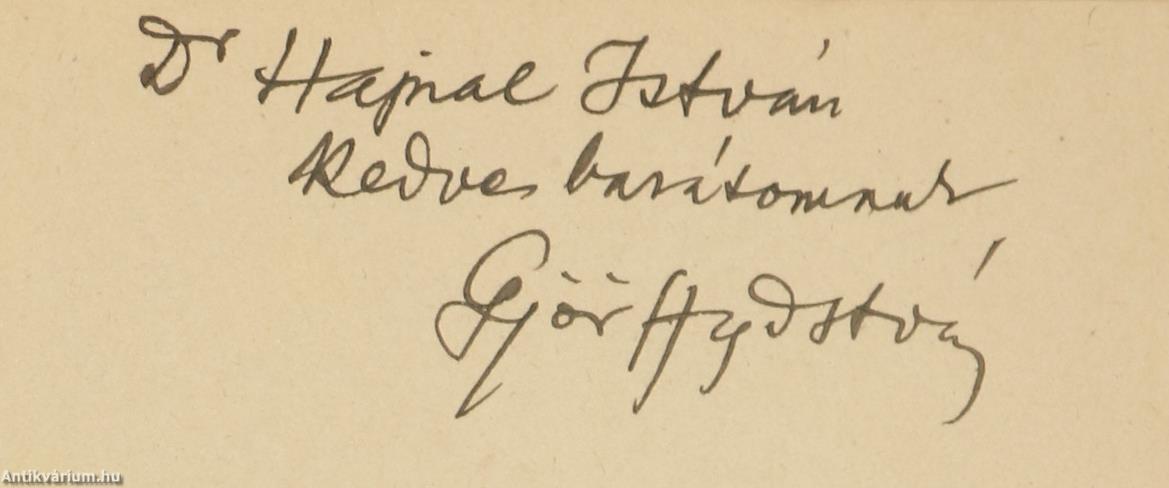 Dr Hajnal István
kedves barátomnak
Györffy István
Antikvárium.hu